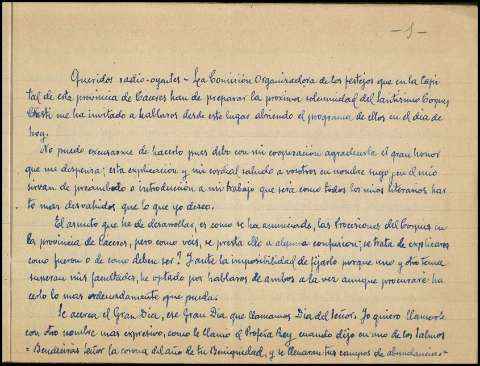 - 1 -
Queridos radio-oyentes - La Comisión Organizadora de los festejos que en la Capi
tal de esta provincia de Caceres han de preparar la proxima solemnidad del Santísimo Corpus
Cristi me ha invitado a hablaros desde este lugar abriendo el programa de ellos en el dia de
hoy.
No puedo excusarme de hacerlo pues debo con mi cooperación agradecerla el gran honor
que me dispensa; esta explicacion y mi cordial saludo a vosotros en nombre suyo y en el mio
sirvan de preambulo o introducción a mi trabajo que será como todos los mios literarios har
to mas desvahidos que lo que yo deseo.
El asunto que he de desarrollar, es como se ha anunciado, las Procesiones del Corpus en
la provincia de Caceres, pero como veis, se presta ello a alguna confusion; se trata de explicaros
como fueron o de como deben ser? Y ante la imposibilidad de fijarlo porque uno y otro tema
superan mis facultades, he optado por hablaros de ambos a la vez aunque procuraré ha
cerlo lo mas ordenadamente que pueda.
Se acerca el Gran Dia, ese Gran Dia que llamamos Dia del Señor. Yo quiero llamarle
con otro nombre mas expresivo, como le llamo el Profeta Rey, cuando dijo en uno de los Salmos
= Bendeciras Señor la corona del año de tu Benignidad, y se llenaran tus campos de abundancias=